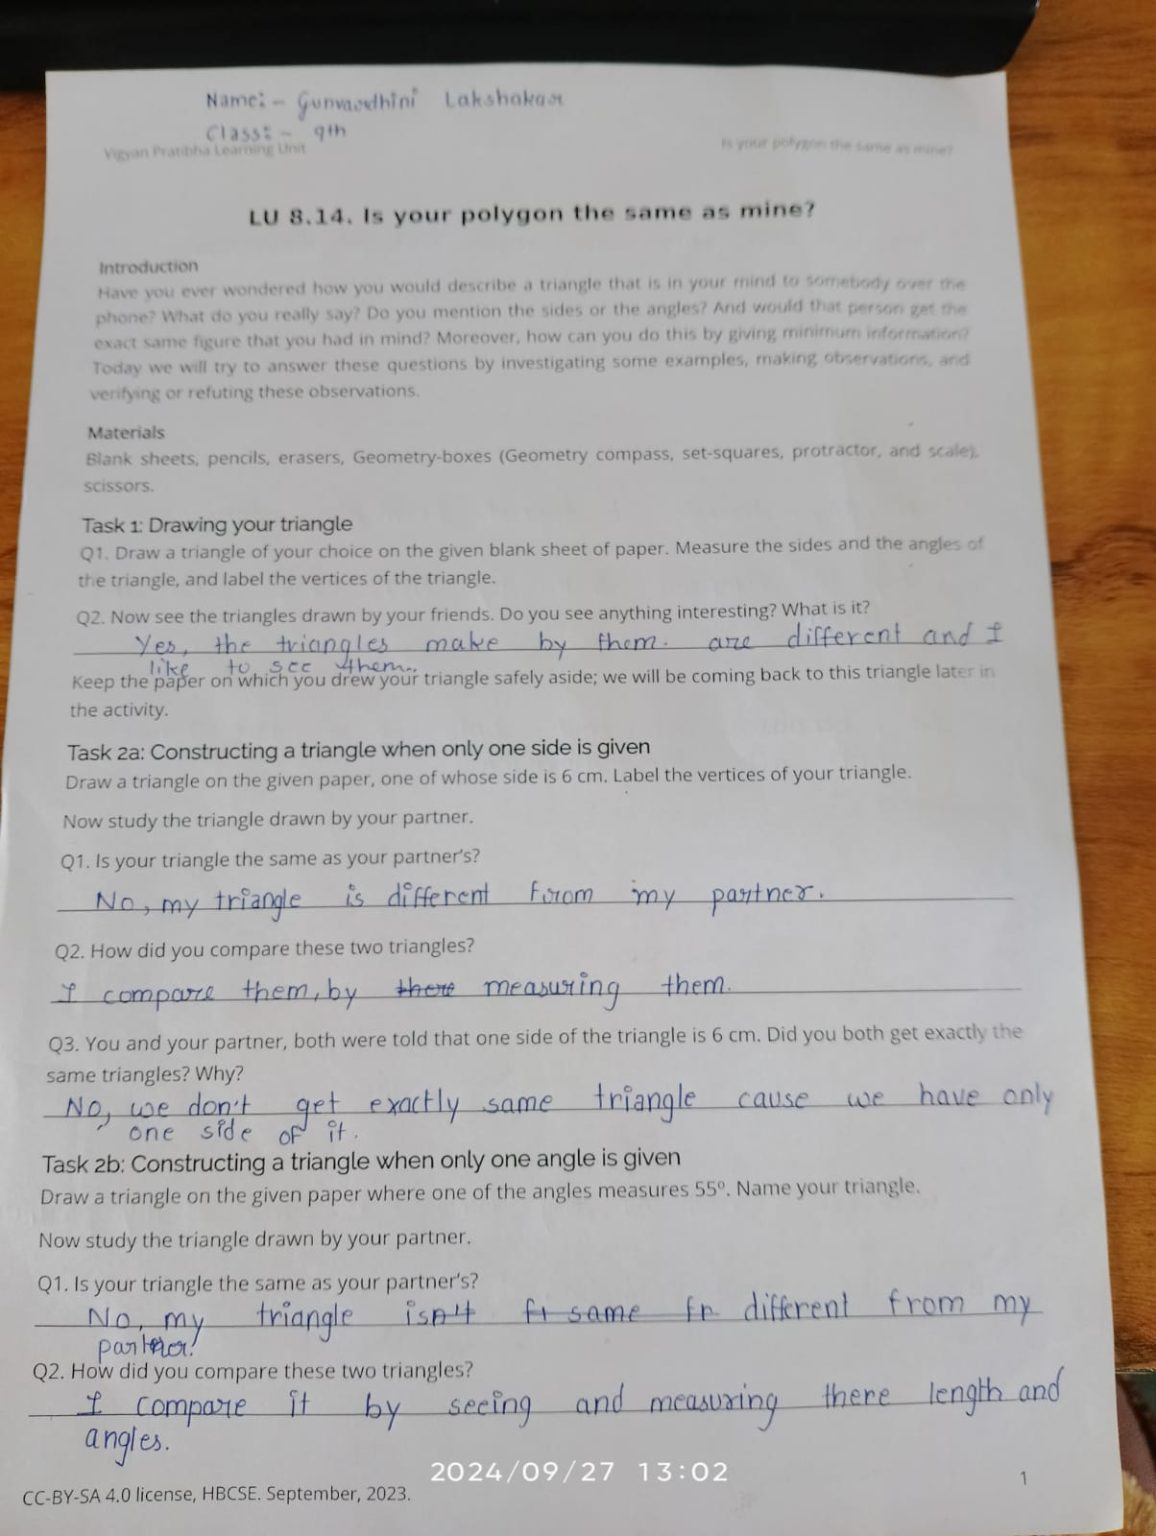 Name:- Gunvardhini Lakshakar
Class:- 9th
Vigyan Pratibha Learning Unit
Is your polygon the same as mine?
LU 8.14. Is your polygon the same as mine?
Introduction
Have you ever wondered how you would describe a triangle that is in your mind to somebody over the
phone? What do you really say? Do you mention the sides or the angles? And would that person get the
exact same figure that you had in mind? Moreover, how can you do this by giving minimum information?
Today we will try to answer these questions by investigating some examples, making observations, and
verifying or refuting these observations.
Materials
Blank sheets, pencils, erasers, Geometry-boxes (Geometry compass, set-squares, protractor, and scale),
scissors.
Task 1: Drawing your triangle
Q1. Draw a triangle of your choice on the given blank sheet of paper. Measure the sides and the angles of
the triangle, and label the vertices of the triangle.
Q2. Now see the triangles drawn by your friends. Do you see anything interesting? What is it?
Yes, the triangles make by them. are different and I
like to see them..
Keep the paper on which you drew your triangle safely aside; we will be coming back to this triangle later in
the activity.
Task 2a: Constructing a triangle when only one side is given
Draw a triangle on the given paper, one of whose side is 6 cm. Label the vertices of your triangle.
Now study the triangle drawn by your partner.
Q1. Is your triangle the same as your partner's?
No, my triangle is different from my partner.
Q2. How did you compare these two triangles?
I compare them, by there measuring them.
Q3. You and your partner, both were told that one side of the triangle is 6 cm. Did you both get exactly the
same triangles? Why?
No, we don't get exactly same triangle cause we have only
one side of it.
Task 2b: Constructing a triangle when only one angle is given
Draw a triangle on the given paper where one of the angles measures 55º. Name your triangle.
Now study the triangle drawn by your partner.
Q1. Is your triangle the same as your partner's?
No, my triangle is same different from my
partner.
Q2. How did you compare these two triangles?
I compare it by seeing and measuring there length and
angles.
2024/09/27 13:02
1
CC-BY-SA 4.0 license, HBCSE. September, 2023.